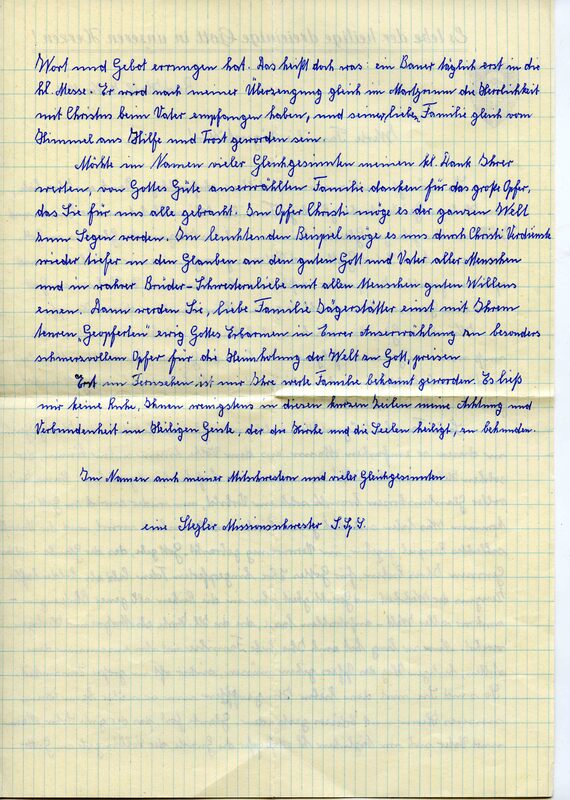 Wort und Gebot errungen hat. Das heißt doch was: ein Bauer täglich erst in die
hl. Messe. Er wird nach meiner Überzeugung gleich im Martyrium die Herrlichkeit
mit Christus beim Vater empfangen haben, und seiner lieben Familie gleich vom
Himmel aus Hilfe und Trost geworden sein.
Möchte im Namen vieler Gleichgesinnten meinen kl. Dank Ihrer
werten, von Gottes Güte auserwählten Familie danken für das große Opfer,
das Sie für uns alle gebracht. Im Opfer Christi möge es der ganzen Welt
zum Segen werden. Im leuchtenden Beispiel möge es uns durch Christi Verdienste
wieder tiefer in den Glauben an den guten Gott und Vater aller Menschen
und in wahrer Brüder-Schwesternliebe mit allen Menschen guten Willens
einen. Dann werden Sie, liebe Familie Jägerstätter einst mit Ihrem
teuren „Geopferten" ewig Gottes Erbarmen in Eurer Auserwählung zu besonders
schmerzvollem Opfer für die Heimholung der Welt zu Gott, preisen
Erst im Fernsehen ist mir Ihre werte Familie bekannt geworden. Es ließ
mir keine Ruhe, Ihnen wenigstens in diesen kurzen Zeilen meine Achtung und
Verbundenheit im Heiligen Geiste, der die Kirche und die Seelen heiligt, zu bekunden.
Im Namen auch meiner Mitschwestern und vieler Gleichgesinnten
eine Steyler Missionsschwester S.Sp.S.